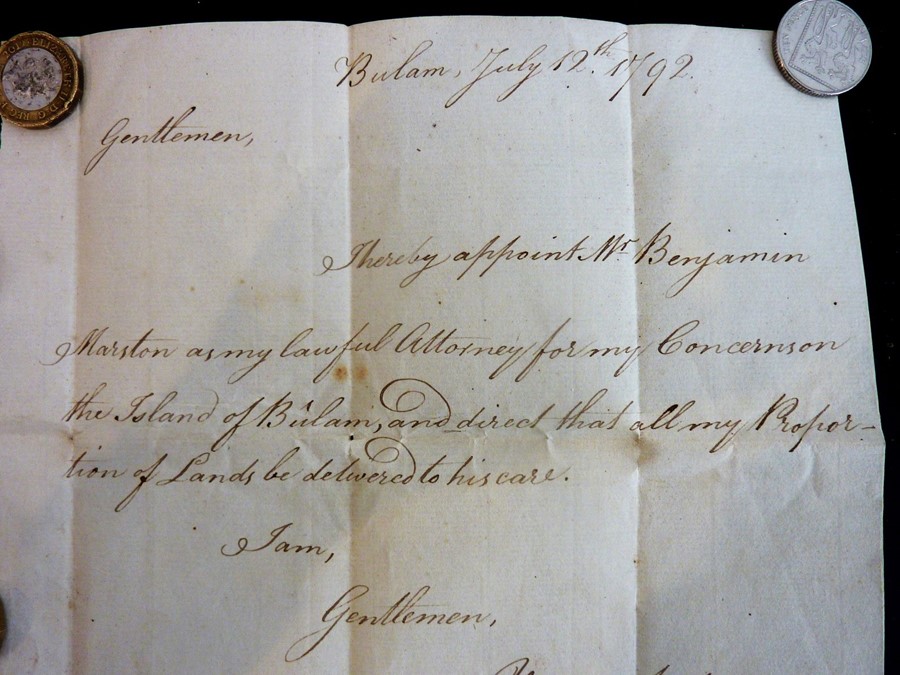 Bulam, July 12th. 1792.
Gentlemen,
I hereby appoint Mr. Benjamin
Marston as my lawful Attorney for my Concerns on
the Island of Bûlam, and direct that all my Propor-
tion of Lands be delivered to his care.
I am,
Gentlemen,